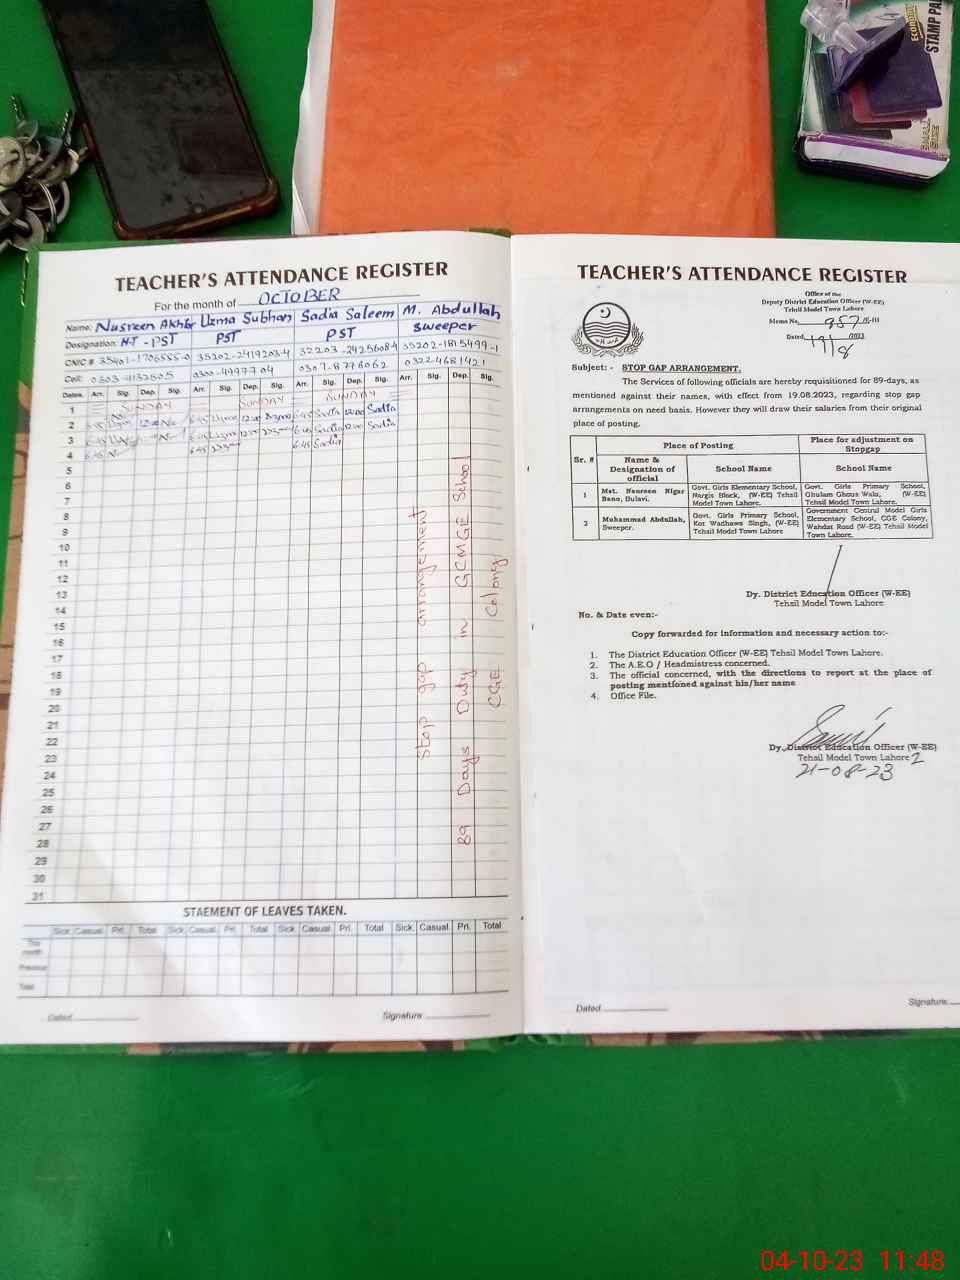 ECONOMY
STAMP PAD
SMALL SIZE
TEACHER'S ATTENDANCE REGISTER
For the month of OCTOBER
Name: Nusreen Akhtar Uzma Subhan Sadia Saleem M. Abdullah
Designation: HT - PST PST PST Sweeper
CNIC # 35401-1706555-0 35202-2419203-4 32203-2425608-4 35202-1815499-1
Cell: 0303-4132505 0300-4997704 0307-8776062 0322-4681421
Dates. Arr. Sig. Dep. Sig. Arr. Sig. Dep. Sig. Arr. Sig. Dep. Sig. Arr. Sig. Dep. Sig.
1 SUNDAY SUNDAY SUNDAY
2 6:45 12:00 6:45 12:00 6:45 Sadia 12:00 Sadia
3 6:45 6:45 12:00 6:45 Sadia 12:00 Sadia
4 6:45 6:45 6:45 Sadia
5
6
7
8
9
10
11
12
13
14
15
16
17
18
19
20
21
22
23
24
25
26
27
28
29
30
31
Stop gap arrangement
89 Days Duty in GCMGE School
CGE Colony
STAEMENT OF LEAVES TAKEN.
Sick. Casual. Pri. Total Sick. Casual. Pri. Total Sick. Casual. Pri. Total Sick. Casual. Pri. Total
This month
Previous
Total
Dated Signature:
TEACHER'S ATTENDANCE REGISTER
Office of the
Deputy District Education Officer (W-EE)
Tehsil Model Town Lahore
Memo No. 857 /E-III
Dated, 19/8 /2023
Subject: - STOP GAP ARRANGEMENT.
The Services of following officials are hereby requisitioned for 89-days, as
mentioned against their names, with effect from 19.08.2023, regarding stop gap
arrangements on need basis. However they will draw their salaries from their original
place of posting.
Sr. # Place of Posting Place for adjustment on Stopgap
Name & Designation of official School Name School Name
1 Mst. Naureen Nigar Bano, Bulavi. Govt. Girls Elementary School, Nargis Block, (W-EE) Tehsil Model Town Lahore. Govt. Girls Primary School, Ghulam Ghous Wala, (W-EE) Tehsil Model Town Lahore.
2 Muhammad Abdullah, Sweeper. Govt. Girls Primary School, Kot Wadhawa Singh, (W-EE) Tehsil Model Town Lahore Government Central Model Girls Elementary School, CGE Colony, Wahdat Road (W-EE) Tehsil Model Town Lahore.
Dy. District Education Officer (W-EE)
Tehsil Model Town Lahore
No. & Date even:-
Copy forwarded for information and necessary action to:-
1. The District Education Officer (W-EE) Tehsil Model Town Lahore.
2. The A.E.O / Headmistress concerned.
3. The official concerned, with the directions to report at the place of
posting mentioned against his/her name
4. Office File.
Dy. District Education Officer (W-EE)
Tehsil Model Town Lahore
21-08-23
Dated Signature:
04-10-23 11:48